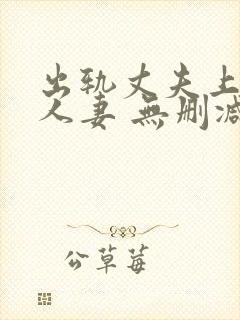 出轨丈夫上
人妻 無删减
公草莓